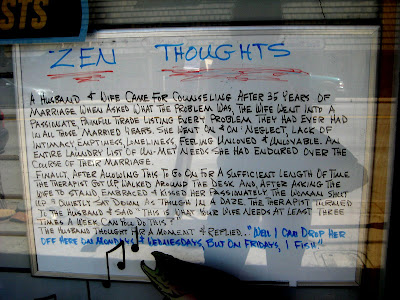 STS
ZEN THOUGHTS
A HUSBAND & WIFE CAME FOR COUNSELING AFTER 35 YEARS OF
MARRIAGE. WHEN ASKED WHAT THE PROBLEM WAS, THE WIFE WENT INTO A
PASSIONATE, PAINFUL TIRADE LISTING EVERY PROBLEM THEY HAD EVER HAD
IN ALL THOSE MARRIED YEARS. SHE WENT ON & ON: NEGLECT, LACK OF
INTIMACY, EMPTINESS, LONELINESS, FEELING UNLOVED & UNLOVABLE. AN
ENTIRE LAUNDRY LIST OF UN-MET NEEDS SHE HAD ENDURED OVER THE
COURSE OF THEIR MARRIAGE.
FINALLY, AFTER ALLOWING THIS TO GO ON FOR A SUFFICIENT LENGTH OF TIME,
THE THERAPIST GOT UP, WALKED AROUND THE DESK AND, AFTER ASKING THE
WIFE TO STAND, EMBRACED & KISSED HER PASSIONATELY. THE WOMAN SHUT
UP & QUIETLY SAT DOWN AS THOUGH IN A DAZE. THE THERAPIST TURNED
TO THE HUSBAND & SAID "THIS IS WHAT YOUR WIFE NEEDS AT LEAST THREE
TIMES A WEEK. CAN YOU DO THIS?"
THE HUSBAND THOUGHT FOR A MOMENT & REPLIED.. "WELL I CAN DROP HER
OFF HERE ON MONDAYS & WEDNESDAYS, BUT ON FRIDAYS, I FISH."